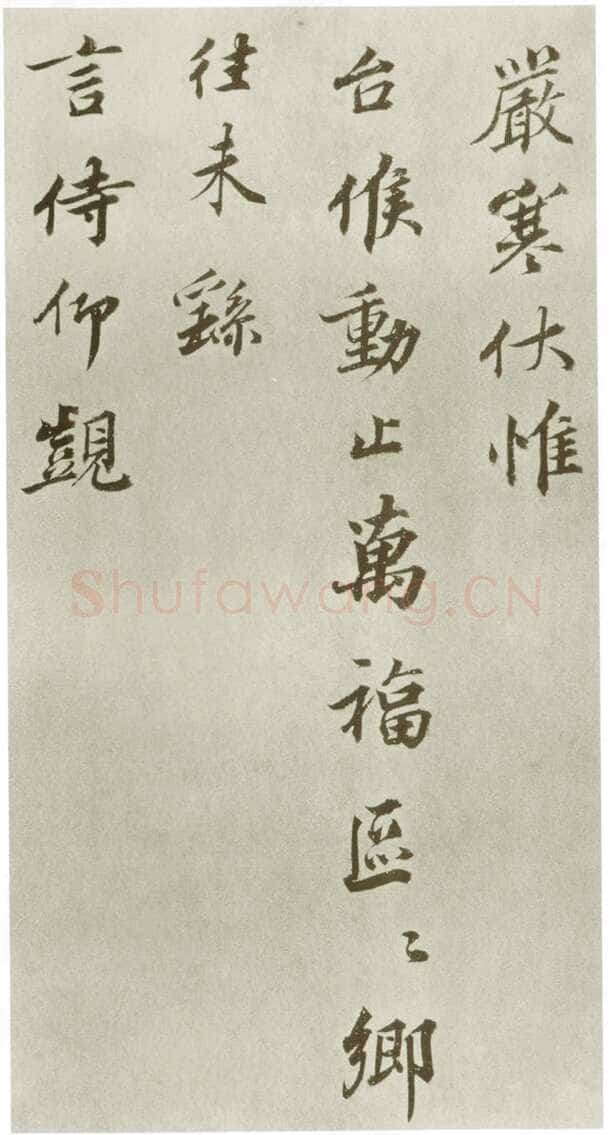 嚴寒伏惟
台候動止萬福區〻鄉
往未繇
言侍仰覬
Shufawang.CN